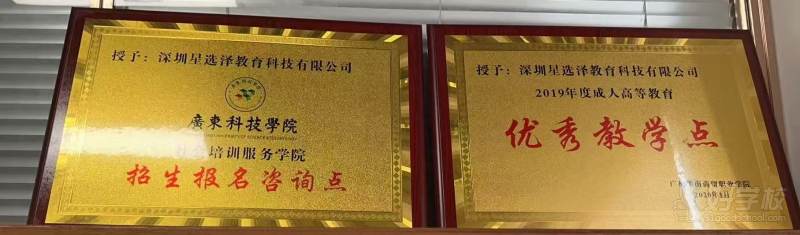 授予：深圳星选泽教育科技有限公司
廣東科技學院
培训服务学院
招生报名咨询点
授予：深圳星选泽教育科技有限公司
2019年度成人高等教育
优秀教学点
职业学院